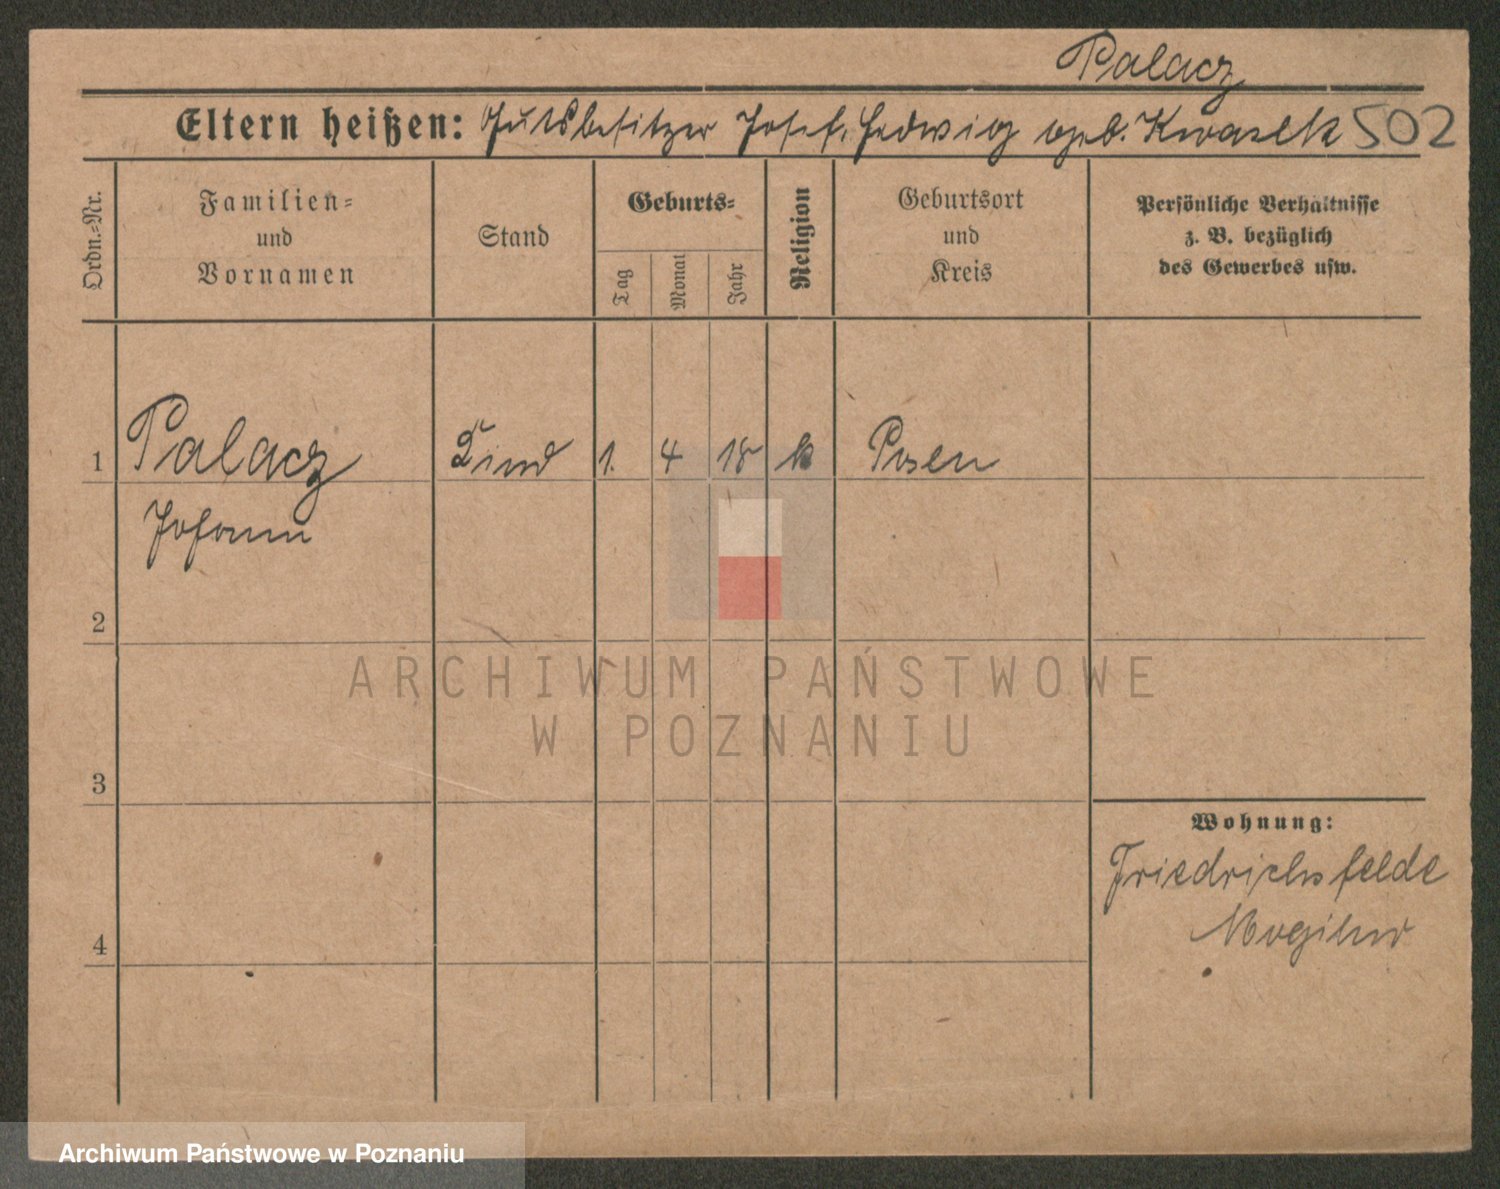 Palacz
Eltern heißen: Gutsbesitzer Josef, Hedwig geb. Kwasek 502
Ordn.=Nr.
Familien=
und
Vornamen
Stand
Geburts=
Tag
Monat
Jahr
Religion
Geburtsort
und
Kreis
Persönliche Verhältnisse
z. B. bezüglich
des Gewerbes usw.
1 Palacz Kind 1. 4 18 k Posen
Johann
2
3
4
Wohnung:
Friedrichsfelde
Mogilno
ARCHIWUM PAŃSTWOWE
W POZNANIU
Archiwum Państwowe w Poznaniu